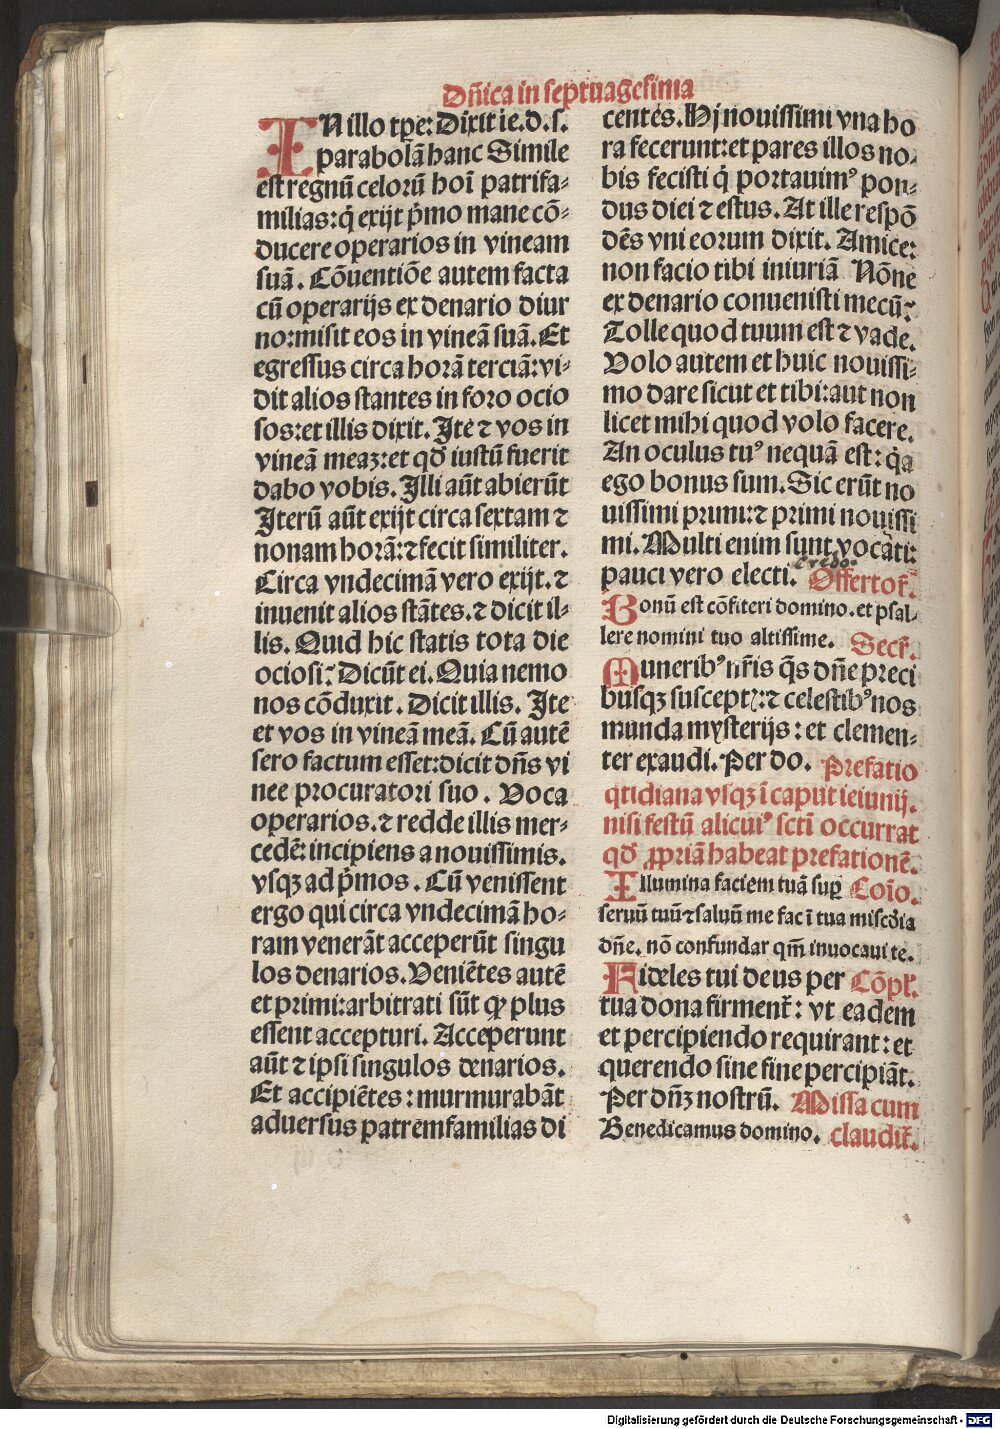 Dñica in septuagesima
IN illo tꝑe: Dixit ie.d.s.
parabolã hanc Simile
est regnũ celorũ hoĩ patrifa-
milias: q̇ exijt p̃mo mane cõ-
ducere operarios in vineam
suã. Cõuentiõe autem facta
cũ operarijs ex denario diur
no: misit eos in vineã suã. Et
egressus circa horã terciã: vi-
dit alios stantes in foro ocio
sos: et illis dixit. Ite ⁊ vos in
vineã meaꝫ: et qđ iustũ fuerit
dabo vobis. Illi aũt abierũt
Iterũ aũt exijt circa sextam ⁊
nonam horã: ⁊ fecit similiter.
Circa vndecimã vero exijt. ⁊
inuenit alios stãtes. ⁊ dicit il-
lis. Quid hic statis tota die
ociosi? Dicũt ei. Quia nemo
nos cõduxit. Dicit illis. Ite
et vos in vineã meã. Cũ autẽ
sero factum esset: dicit dñs vi
nee procuratori suo. Voca
operarios. ⁊ redde illis mer-
cedẽ: incipiens a nouissimis.
vsqꝫ ad p̃mos. Cũ venissent
ergo qui circa vndecimã ho-
ram venerãt acceperũt singu
los denarios. Veniẽtes autẽ
et primi: arbitrati sũt ꝙ plus
essent accepturi. Acceperunt
aũt ⁊ ipsi singulos denarios.
Et accipiẽtes: murmurabãt
aduersus patremfamilias di
centes. Hj nouissimi vna ho
ra fecerunt: et pares illos no-
bis fecisti q̇ portauimꝰ pon-
dus diei ⁊ estus. At ille respõ
dẽs vni eorum dixit. Amice:
non facio tibi iniuriã Nõne
ex denario conuenisti mecũ?
Tolle quod tuum est ⁊ vade.
Volo autem et huic nouissi-
mo dare sicut et tibi: aut non
licet mihi quod volo facere.
An oculus tuꝰ nequã est: q̇a
ego bonus sum. Sic erũt no
uissimi primi: ⁊ primi nouissi
mi. Multi enim sunt vocati:
credo.
pauci vero electi. Offertoꝝ.
Bonũ est cõfiteri domino. et psal-
lere nomini tuo altissime. Secr̃.
Muneribꝰ nr̃is q̃s dñe preci
busqꝫ suscept̃: ⁊ celestibꝰ nos
munda mysterijs: et clemen-
ter exaudi. Per do. Prefatio
qtidiana vsqꝫ ĩ caput ieiunij.
nisi festũ alicuiꝰ sctĩ occurrat
qđ ꝓpriã habeat prefationẽ.
Illumina faciem tuã suꝑ Coĩo.
seruũ tuũ ⁊ saluũ me fac ĩ tua miscđia
dñe. nõ confundar qm̃ inuocaui te.
Fideles tui deus per Cõpl̃.
tua dona firment̃: vt eadem
et percipiendo requirant: et
querendo sine fine percipiãt.
Per dñꝫ nostrũ. Missa cum
Benedicamus domino. claudit̃.
Digitalisierung gefördert durch die Deutsche Forschungsgemeinschaft - DFG